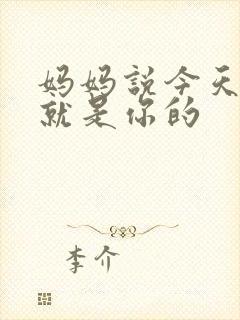 妈妈説今天
就是你的
李介